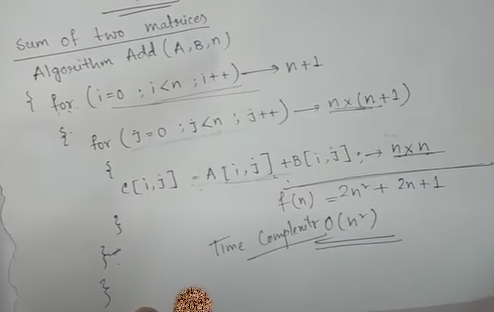 Sum of two matrices
Algorithm Add (A,B,n)
{ for (i=0 ; i<n ; i++) → n+1
{ for (j=0 ; j<n ; j++) → n×(n+1)
{
c[i,j] = A[i,j] + B[i,j]; → n×n
f(n) = 2n² + 2n+1
}
Time Complexity O(n²)
}
}